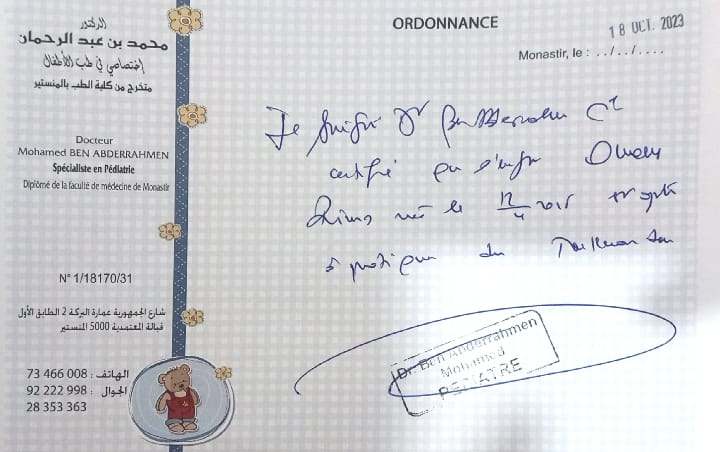 الدكتور
محمد بن عبد الرحمان
إختصاصي في طب الأطفال
متخرج من كلية الطب بالمنستير
Docteur
Mohamed BEN ABDERRAHMEN
Spécialiste en Pédiatrie
Diplômé de la faculté de médecine de Monastir
N° 1/18170/31
شارع الجمهورية عمارة البركة 2 الطابق الأول
قبالة المعتمدية 5000 المنستير
الهاتف : 73 466 008
الجوال : 92 222 998
28 353 363
ORDONNANCE
18 OCT. 2023
Monastir, le : ../../....
Je Dr
certifié
né le 12/4
à du
Dr Ben Abderrahmen
Mohamed
PEDIATRE